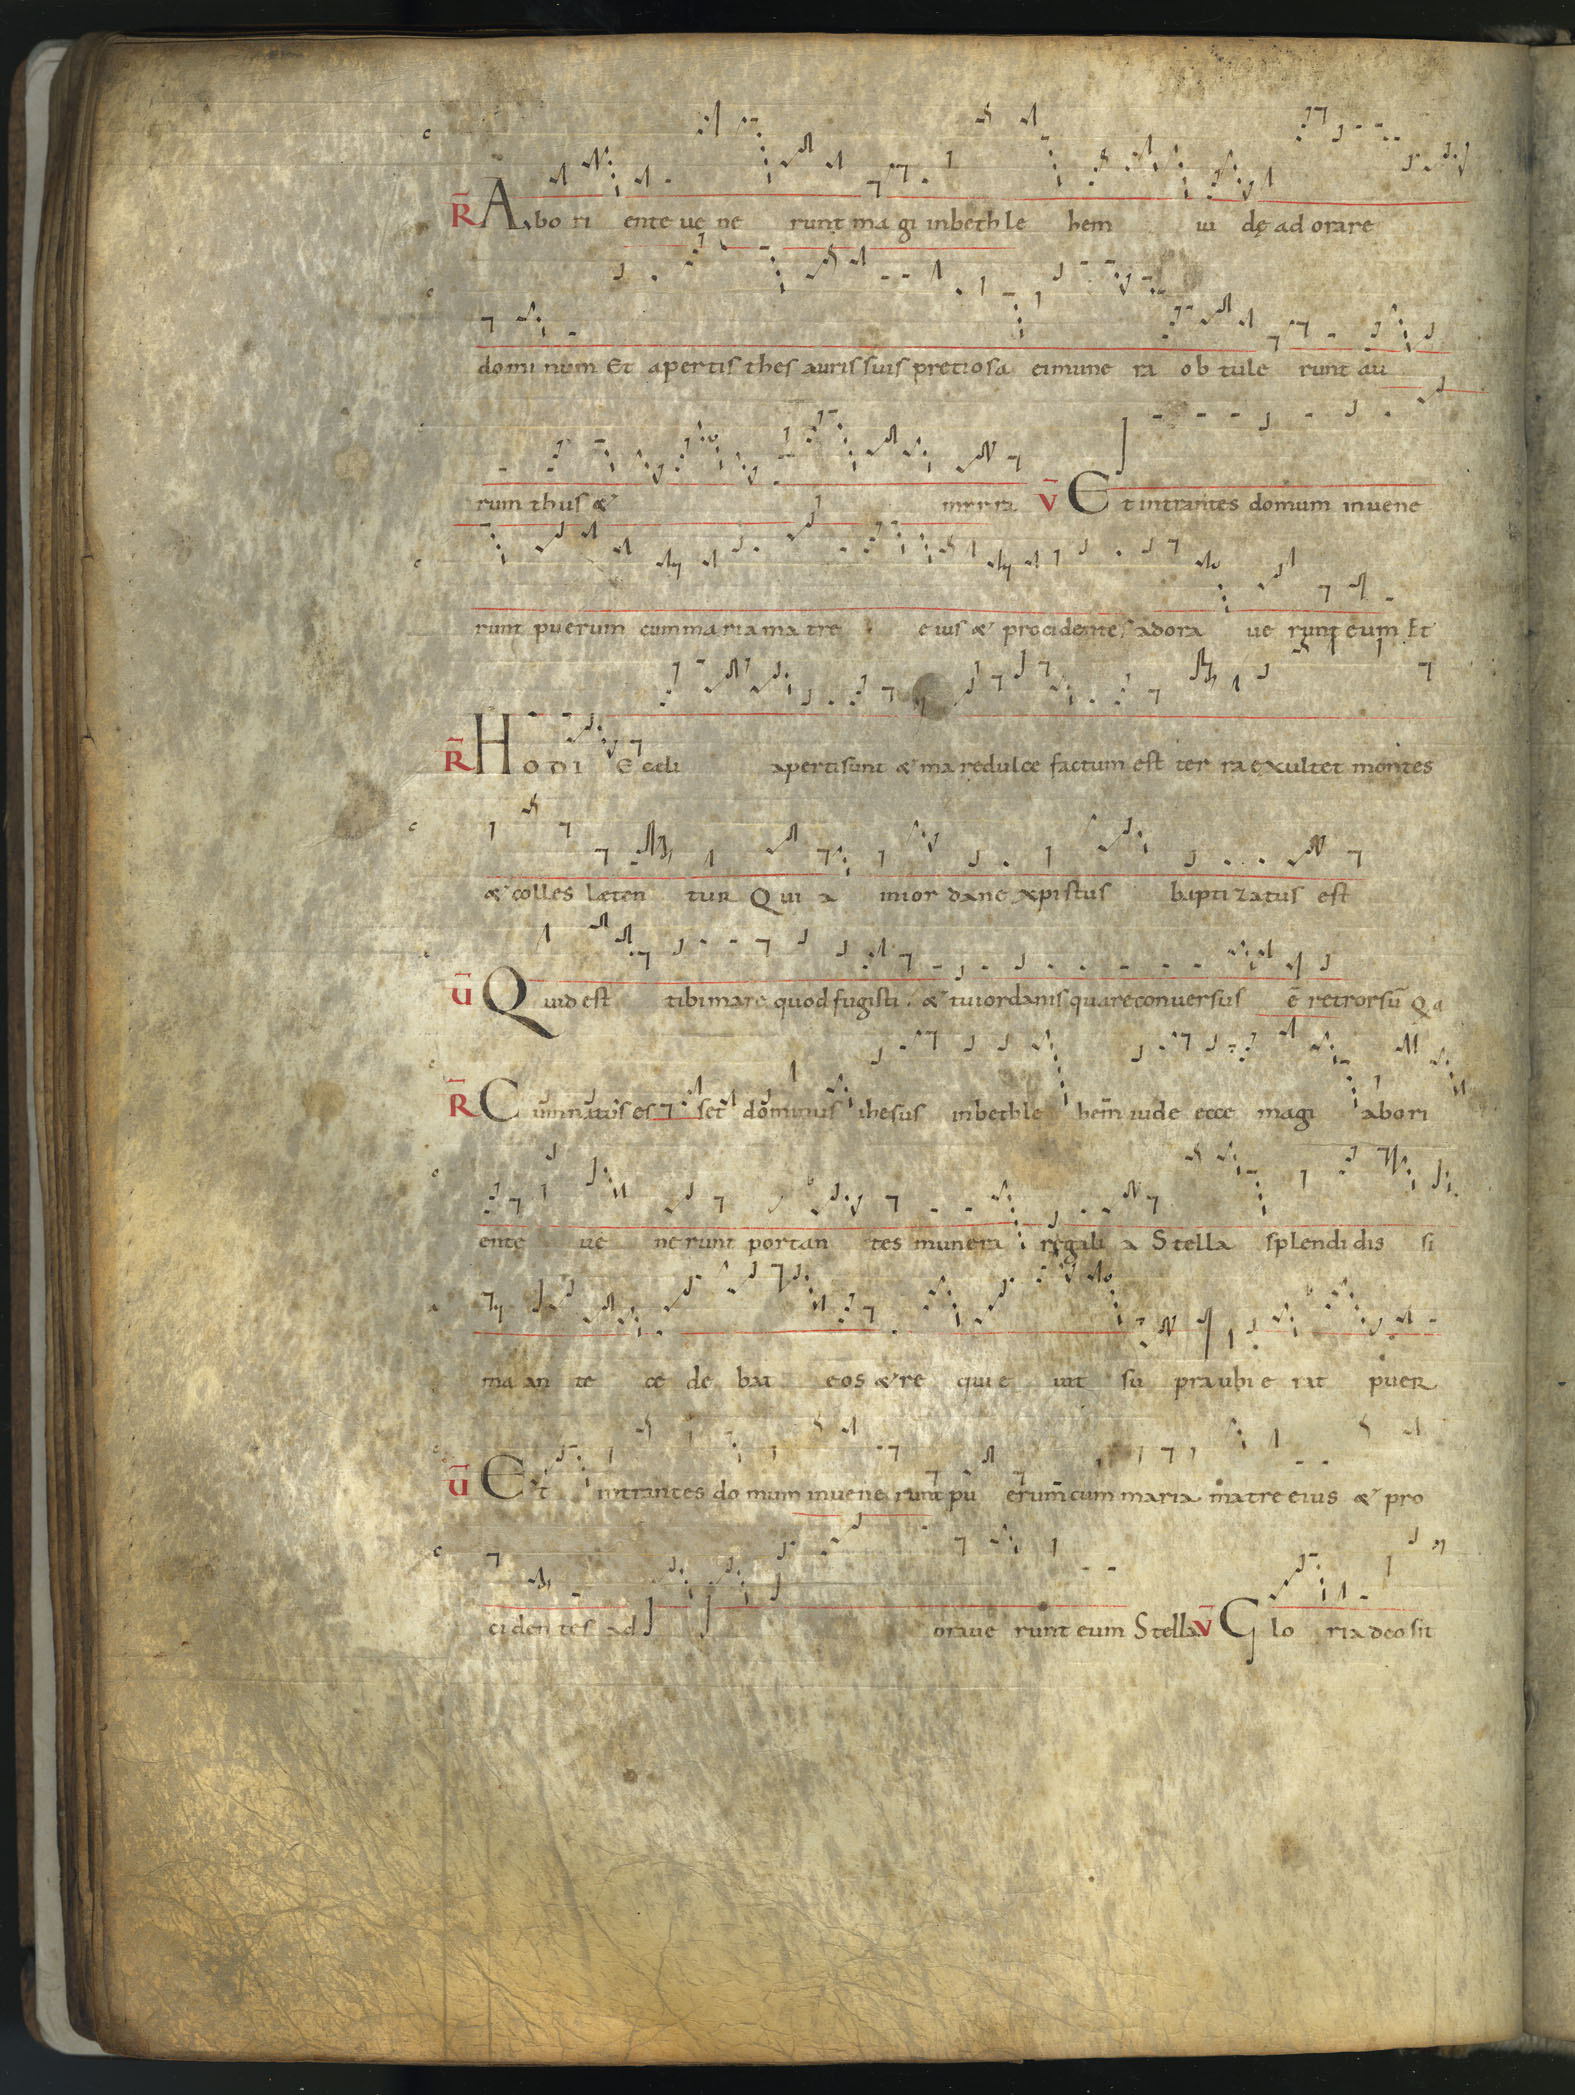 R̄ Abo ri ente ue ne runt ma gi inbethle hem iu dę ad orare
domi num Et apertis thes auris suis pretiosa ei mune ra ob tule runt au
rum thus & mirra V̄ Et intrantes domum inuene
runt puerum cum maria ma tre eius & procidentes adora ue runt eum Et
R̄ HODI E celi aperti sunt & mare dulce factum est ter ra exultet montes
& colles læten tur Qui a in ior dane xpistus bapti zatus est
Ū Quid est tibi mare quod fugisti. & tu iordanis quare conuersus ē retrorsū Qa
R̄ Cum natus es set dominus ihesus in bethle hem iude ecce magi abori
ente ue nerunt portan tes munera regali a Stella splendidis si
ma an te ce de bat eos & re qui e uit su pra ubi e rat puer
Ū Et intrantes do mum inuene runt pu erum cum maria matre eius & pro
ciden tes ad oraue runt eum Stella V̄ Glo ria deo sit